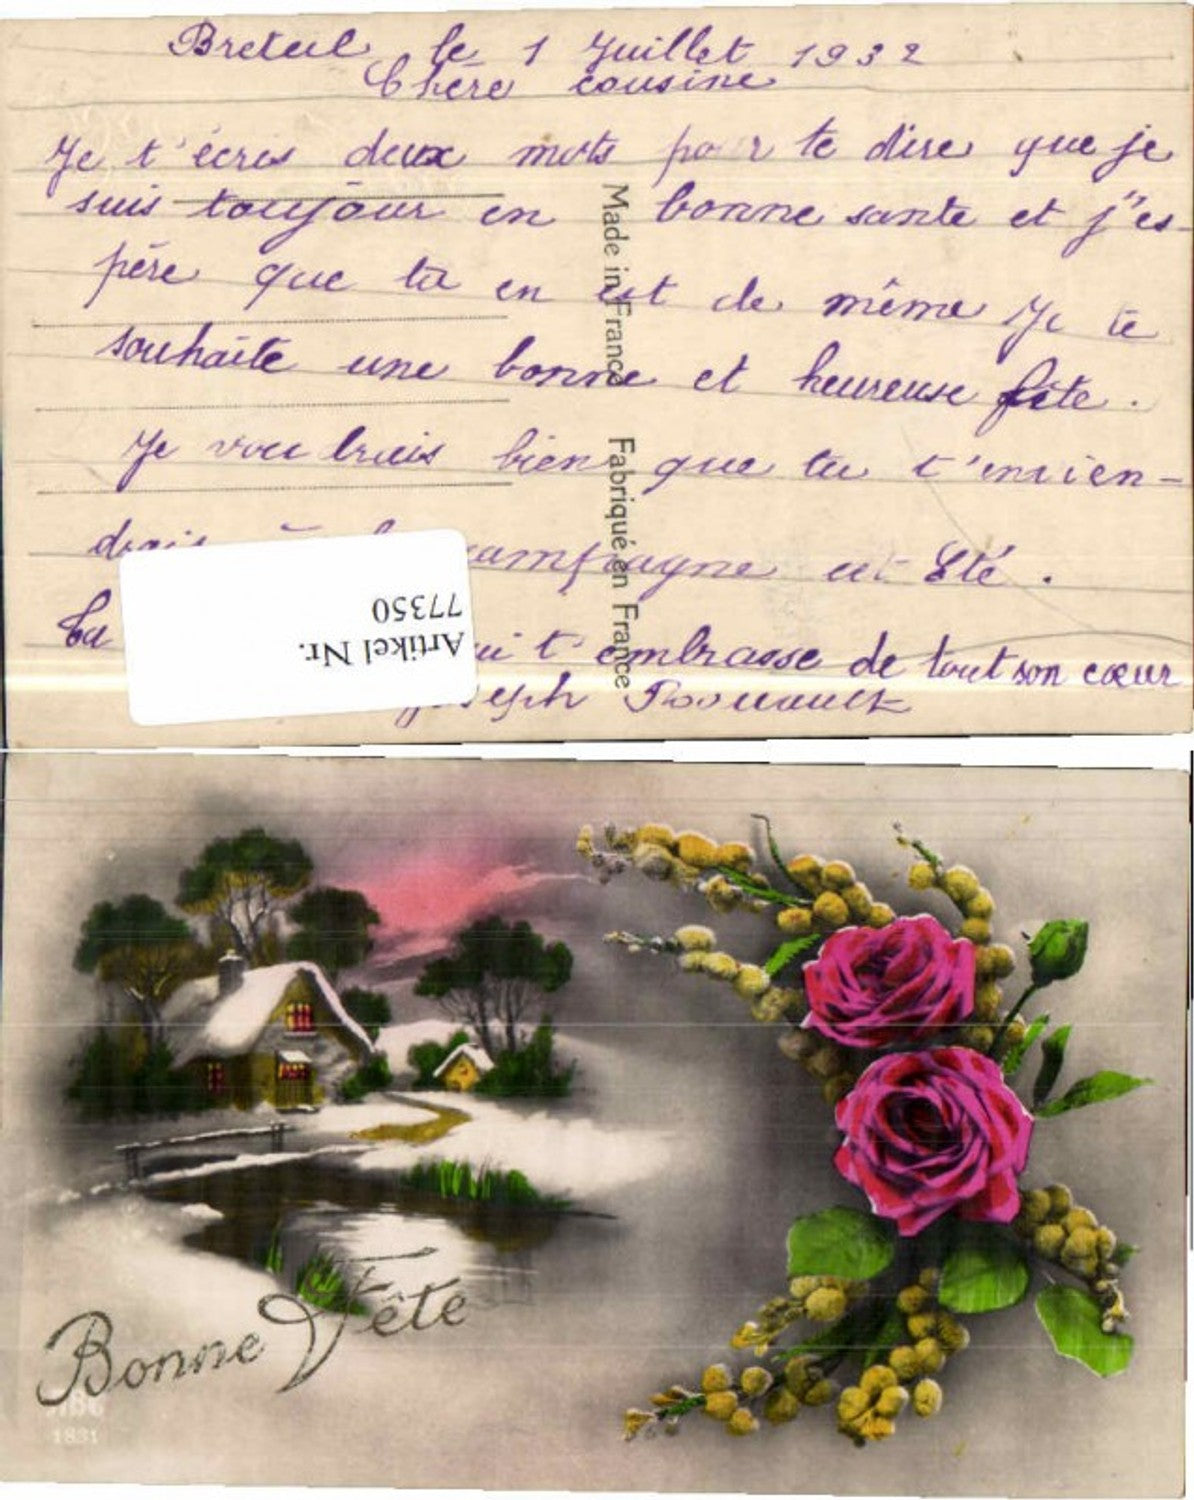 Breteil le 1 Juillet 1932
Chère cousine
Je t'écris deux mots pour te dire que je
suis toujour en bonne sante et j'es-
père que ta en est de même Je te
souhaite une bonne et heureuse fête.
Je voudrais bien que tu t'en vien-
drais à campagne cet Eté.
Ta qui t'embrasse de tout son cœur
Joseph
Made in France Fabriqué en France
Artikel Nr.
77350
Bonne Fête
1831